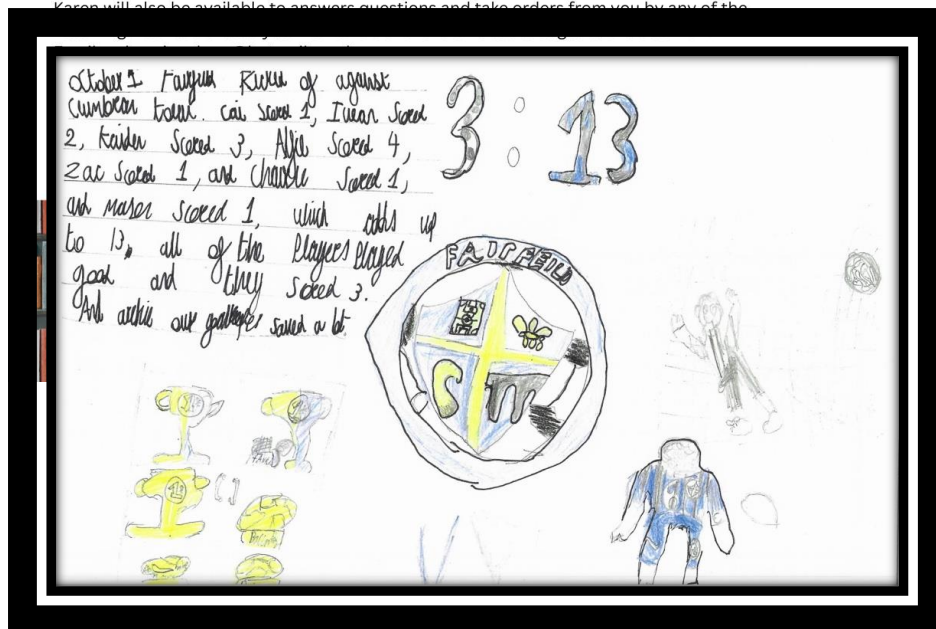 Karen will also be available to answers questions and take orders from you by any of the
October 1 Kicked of against
Cumbran town. Cai Scored 1, Iwan Scored
2, Kaiden Scored 3, Alfie Scored 4,
Zac Scored 1, and Charlie Scored 1,
and mason scored 1, which adds up
to 13, all of the Players Played
good and they scored 3.
And archie our goalkeeper saved a lot
3 : 13
FAIRFEILD